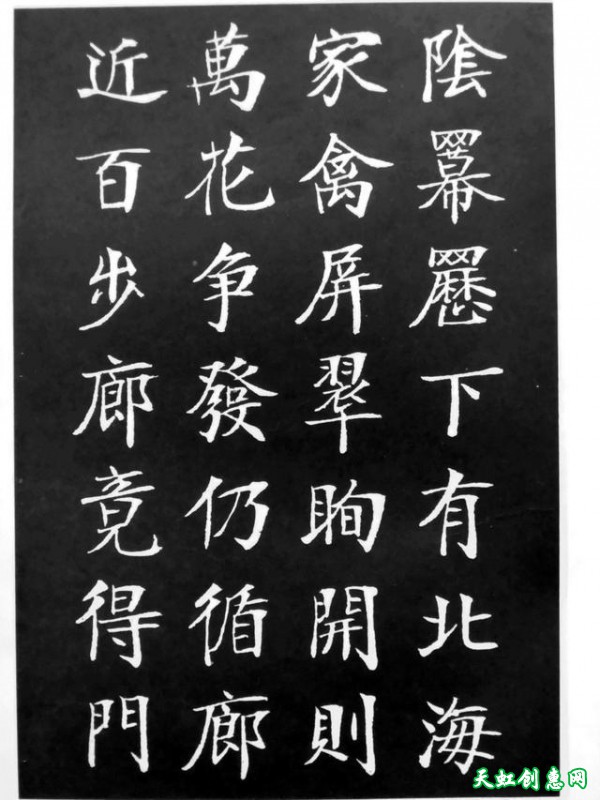 陰羃䍥下有北海
家禽屏翠眴開則
萬花争發仍循廊
近百步廊竟得門
天虹创惠网